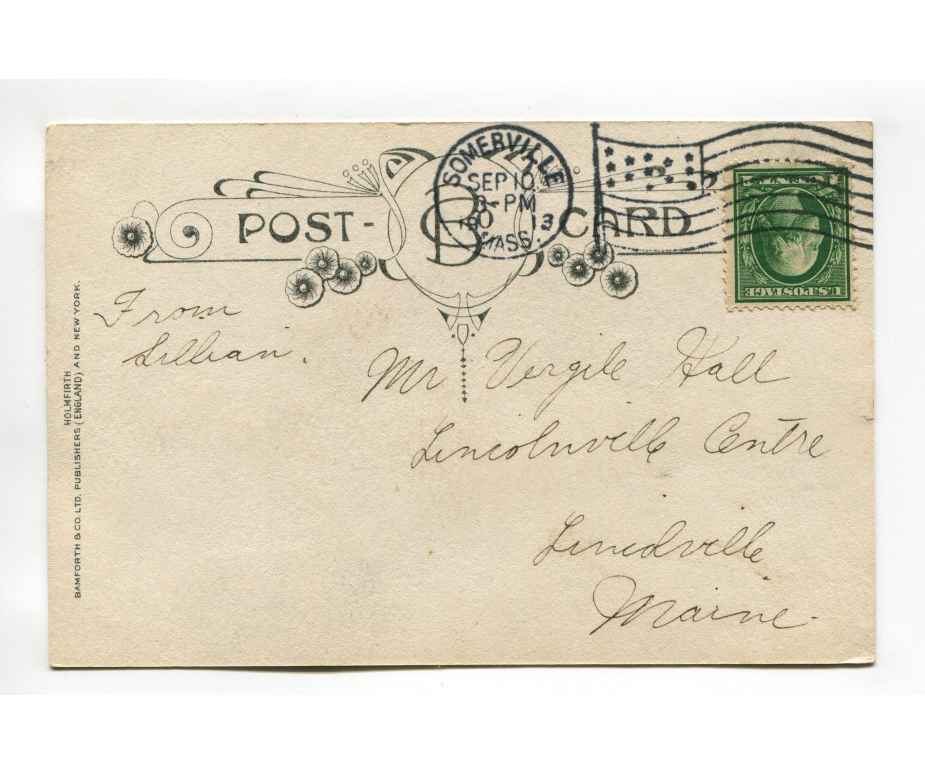 POST- B CARD
SOMERVILLE
SEP 10
-PM
13
MASS.
U.S. POSTAGE
From
Lillian.
Mr Vergile Hall
Lincolnville Centre
Lincolville
Maine.
HOLMFIRTH
BAMFORTH & CO. LTD. PUBLISHERS (ENGLAND) AND NEW YORK.